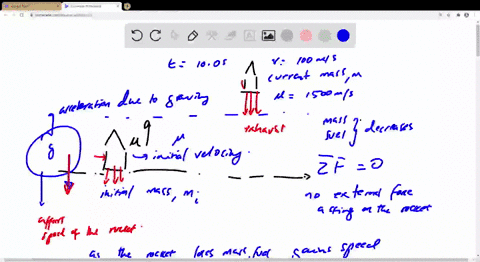 t = 10.0s
v = 100 m/s
current mass, m
u = 1500 m/s
exhaust
acceleration due to gravity
g
u
initial velocity
initial mass, mi
mass
fuel } decreases
ΣF = 0
no external force
acting on the rocket
affects
speed of the rocket.
as the rocket loses mass, fuel gains speed